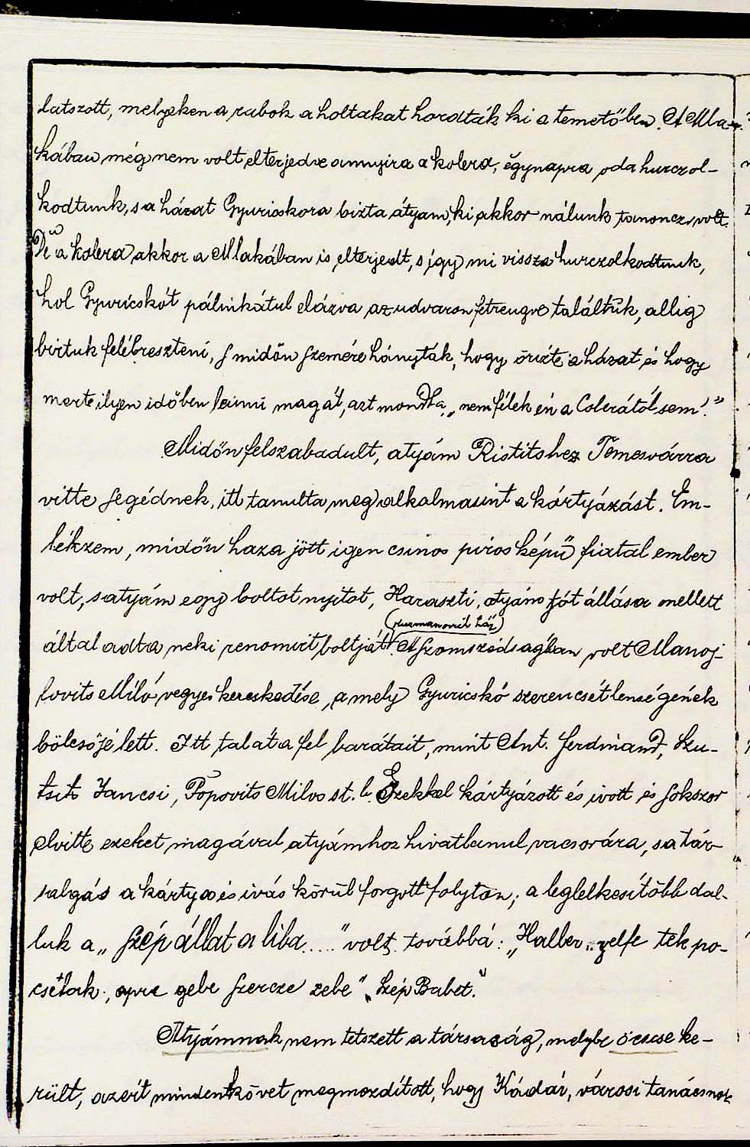 látszott, melyeken a rabok a holtakat hordták ki a temetőben. A Mla-
kában még nem volt elterjedve annyira a kolera, égynapra oda hurczol-
kodtunk, s a házat Gyuricskora bizta átyám, ki akkor nálunk tanoncz volt.
De a kolera akkor a Mlakában is elterjedt, s így mi vissza hurczolkodtunk,
hol Gyuricskót pálinkátul elázva az udvaron fetrengve találtuk, allig
birtuk felébreszteni, s midőn szemére hányták, hogy őrizte a házat és hogy
merte ilyen időben leinni magát, azt mondta, „nem félek én a Colerától sem!"
Midőn felszabadult, atyám Ristitshez Temesvárra
vitte segédnek, itt tanulta meg alkalmasint a kártyázást. Em-
lékzem, midőn haza jött igen csinos piros képű fiatal ember
volt, s atyám egy boltot nyitot, Haraszti, atyám jót állása mellett
(Kuzmanovits ház)
által adta neki renomirt boltját. A szomszédságban volt Manoj-
lovits Miló vegyes kereskedése, a mely Gyuricskó szerencsétlenségének
bölcsője lett. Itt talált a fel barátait, mint Ant. Ferdinand,
Jancsi, Popovits Milvo st. b. Ezekkel kártyázott és ivott és sokszor
elvitte ezeket magával atyámhoz hivatlanul vacsorára, s a tár-
salgás a kártya és ivás körül forgott folyton; a leglelkesitőbb dal-
luk a „Szép állat a liba...." volt továbbá: „Halber zelfe tek po-
csétak, opre gebe szercze zebe" „Szép Babet."
Atyámnak nem tetszett a társaság, melybe öcscse ke-
rült, azért minden követ megmozdított, hogy Kádár, városi tanácsnok